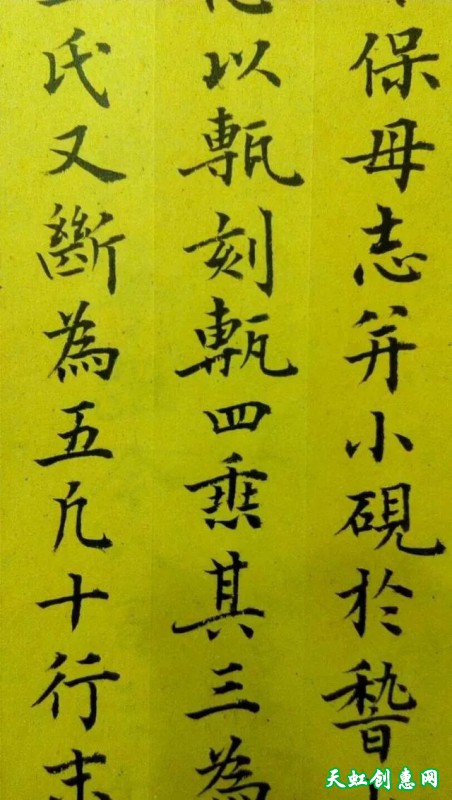 保母志并小硯於稽
以甎刻甎四垂其三為
氏又斷為五凡十行末
天虹创惠网